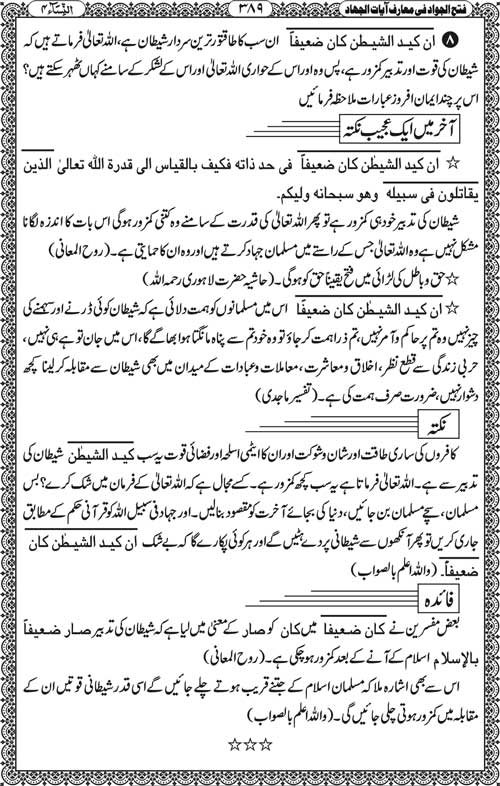 النساء ۴
۳۸۹
فتح الجواد فی معارف آیات الجہاد
۸ ان کید الشیطٰن کان ضعیفاً ان سب کا طاقتور ترین سردار شیطان ہے، اللہ تعالیٰ فرماتے ہیں کہ
شیطان کی قوت اور تدبیر کمزور ہے، پس وہ اور اس کے حواری اللہ تعالیٰ اور اس کے لشکر کے سامنے کہاں ٹھہر سکتے ہیں؟
اس پر چند ایمان افروز عبارات ملاحظہ فرمائیں
آخر میں ایک عجیب نکتہ
☆ ان کید الشیطٰن کان ضعیفاً فی حد ذاته فکیف بالقیاس الی قدرة الله تعالیٰ الذین
یقاتلون فی سبیله وهو سبحانه ولیکم.
شیطان کی تدبیر خود ہی کمزور ہے تو پھر اللہ تعالیٰ کی قدرت کے سامنے وہ کتنی کمزور ہوگی اس بات کا اندازہ لگانا
مشکل نہیں ہے وہ اللہ تعالیٰ جس کے راستے میں مسلمان جہاد کرتے ہیں اور وہ ان کا حمایتی ہے۔ (روح المعانی)
☆ حق و باطل کی لڑائی میں فتح یقیناً حق کو ہوگی۔ (حاشیہ حضرت لاہوری رحمہ اللہ)
☆ ان کید الشیطٰن کان ضعیفاً اس میں مسلمانوں کو ہمت دلائی ہے کہ شیطان کوئی ڈرنے اور سہمنے کی
چیز نہیں وہ تم پر حاکم و آمر نہیں، تم ذرا ہمت کر جاؤ تو وہ خود تم سے پناہ مانگتا ہوا بھاگے گا، اس میں جان تو ہے ہی نہیں،
حربی زندگی سے قطع نظر، اخلاق و معاشرت، معاملات و عبادات کے میدان میں بھی شیطان سے مقابلہ کر لینا کچھ
دشوار نہیں، ضرورت صرف ہمت کی ہے۔ (تفسیر ماجدی)
نکتہ
کافروں کی ساری طاقت اور شان و شوکت اور ان کا ایٹمی اسلحہ اور فضائی قوت یہ سب کید الشیطٰن شیطان کی
تدبیر سے ہے۔ اللہ تعالیٰ فرماتا ہے یہ سب کچھ کمزور ہے۔ کسے مجال ہے کہ اللہ تعالیٰ کے فرمان میں شک کرے؟ بس
مسلمان، سچے مسلمان بن جائیں، دنیا کی بجائے آخرت کو مقصود بنالیں۔ اور جہاد فی سبیل اللہ کو قرآنی حکم کے مطابق
جاری کریں تو پھر آنکھوں سے شیطانی پردے ہٹیں گے اور ہر کوئی پکارے گا کہ بے شک ان کید الشیطٰن کان
ضعیفاً. (واللہ اعلم بالصواب)
فائدہ
بعض مفسرین نے کان ضعیفاً میں کان کو صار کے معنیٰ میں لیا ہے کہ شیطان کی تدبیر صار ضعیفاً
بالإسلام اسلام کے آنے کے بعد کمزور ہوچکی ہے۔ (روح المعانی)
اس سے بھی اشارہ ملا کہ مسلمان اسلام کے جتنے قریب ہوتے چلے جائیں گے اسی قدر شیطانی قوتیں ان کے
مقابلہ میں کمزور ہوتی چلی جائیں گی۔ (واللہ اعلم بالصواب)
☆☆☆